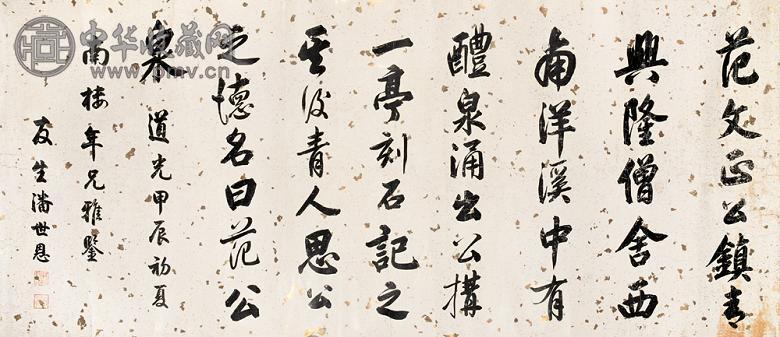 范文正公鎮青
興隆僧舍西
南洋溪中有
醴泉涌出公構
一亭刻石記之
其後青人思公
之德名曰范公
泉 道光甲辰初夏
南樓年兄雅鑒
友生潘世恩
中华收藏网
www.pmv.cn